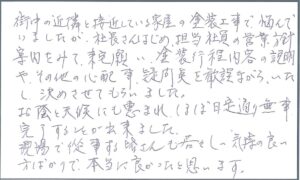 街中の近隣と接近している家屋の塗装工事で悩んで
いましたが、社長さんはじめ、担当社員の営業方針
案内をみて、来宅願い、塗装行程内容の説明
や、その他の心配事、疑問点を歓談しながら、いた
し、決めさせてもらいました。
お陰と天候にも恵まれ、ほぼ日程通り無事
完了することが出来ました。
現場で従事する皆さんも若々しい気持の良い
方ばかりで、本当に良かったと思います。